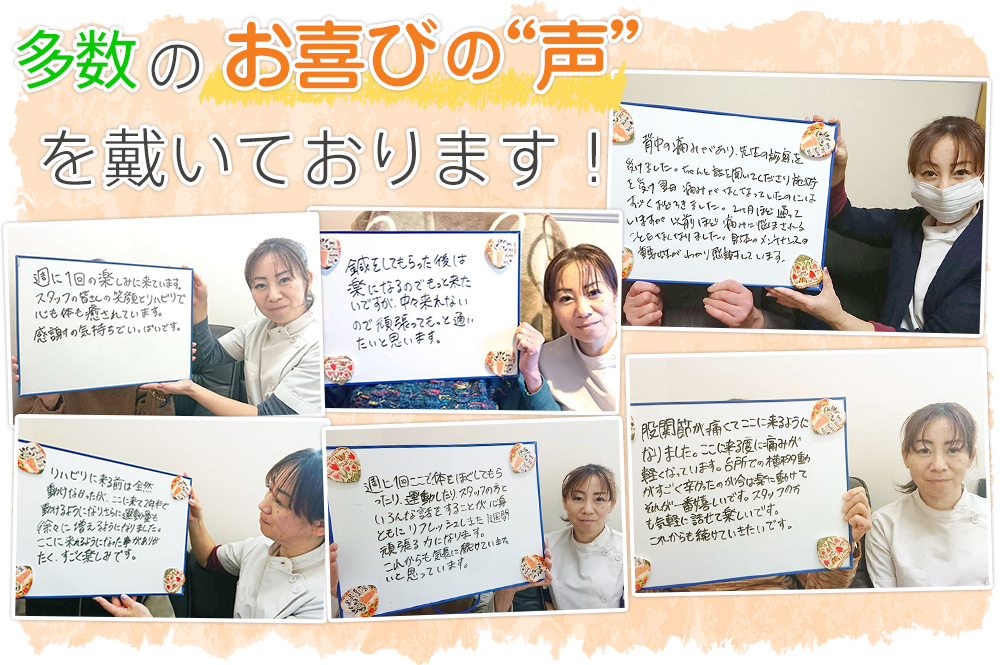 多数のお喜びの“声”
を戴いております！
背中の痛みがあり、先生の診察を
受けました。ちゃんと話を聞いてくださり施術
を受け翌日痛みがなくなっていたのには
すごくおどろきました。2ヶ月ほど通って
いますが以前ほど痛みに悩まされる
こともなくなりました。身体のメンテナンスの
重要性がわかり感謝しています。
週に1回の楽しみに来ています。
スタッフの皆さんの笑顔とリハビリで
心も体も癒されています。
感謝の気持ちでいっぱいです。
鍼をしてもらった後は
楽になるのでもっと来た
いですが、中々来れない
ので頑張ってもっと通い
たいと思います。
リハビリに来る前は全然
動けなかったが、ここに来て2年半で
動けるようになりさらに運動量も
徐々に増えるようになりました。
ここに来れるようになった事がありが
たく、すごく楽しみです。
週に1回ここで体をほぐしてもら
ったり、運動したり、スタッフの方と
いろんな話をすることが心身
ともにリフレッシュしまた1週間
頑張る力になります。
これからも気長に続けていきた
いと思っています。
股関節が痛くてここに来るように
なりました。ここに来る度に痛みが
軽くなっています。台所での横移動
がすごく辛かったのが今は楽に動けて
それが一番嬉しいです。スタッフの方
も気軽に話せて楽しいです。
これからも続けていきたいです。